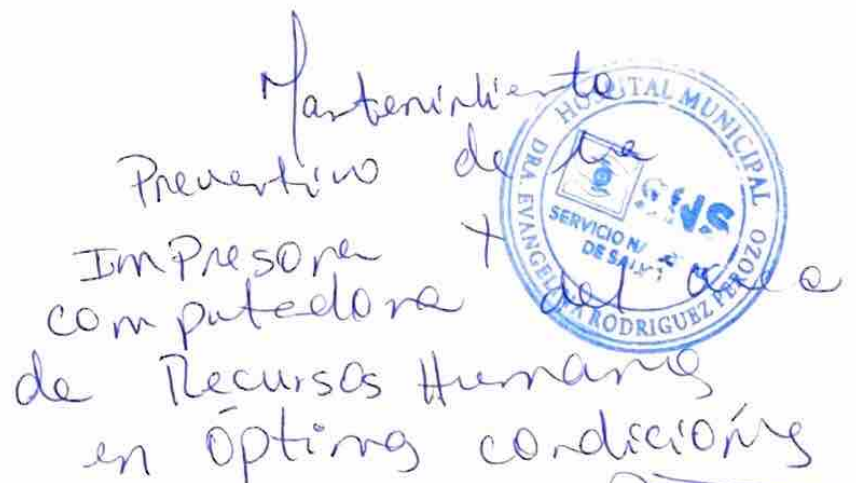 Mantenimiento
Preventivo de la
Impresora y
computadora del area
de Recursos Humanos
en óptimas condiciones
HOSPITAL MUNICIPAL
DRA. EVANGELINA RODRIGUEZ PEROZO
SNS
SERVICIO
DE SALUD